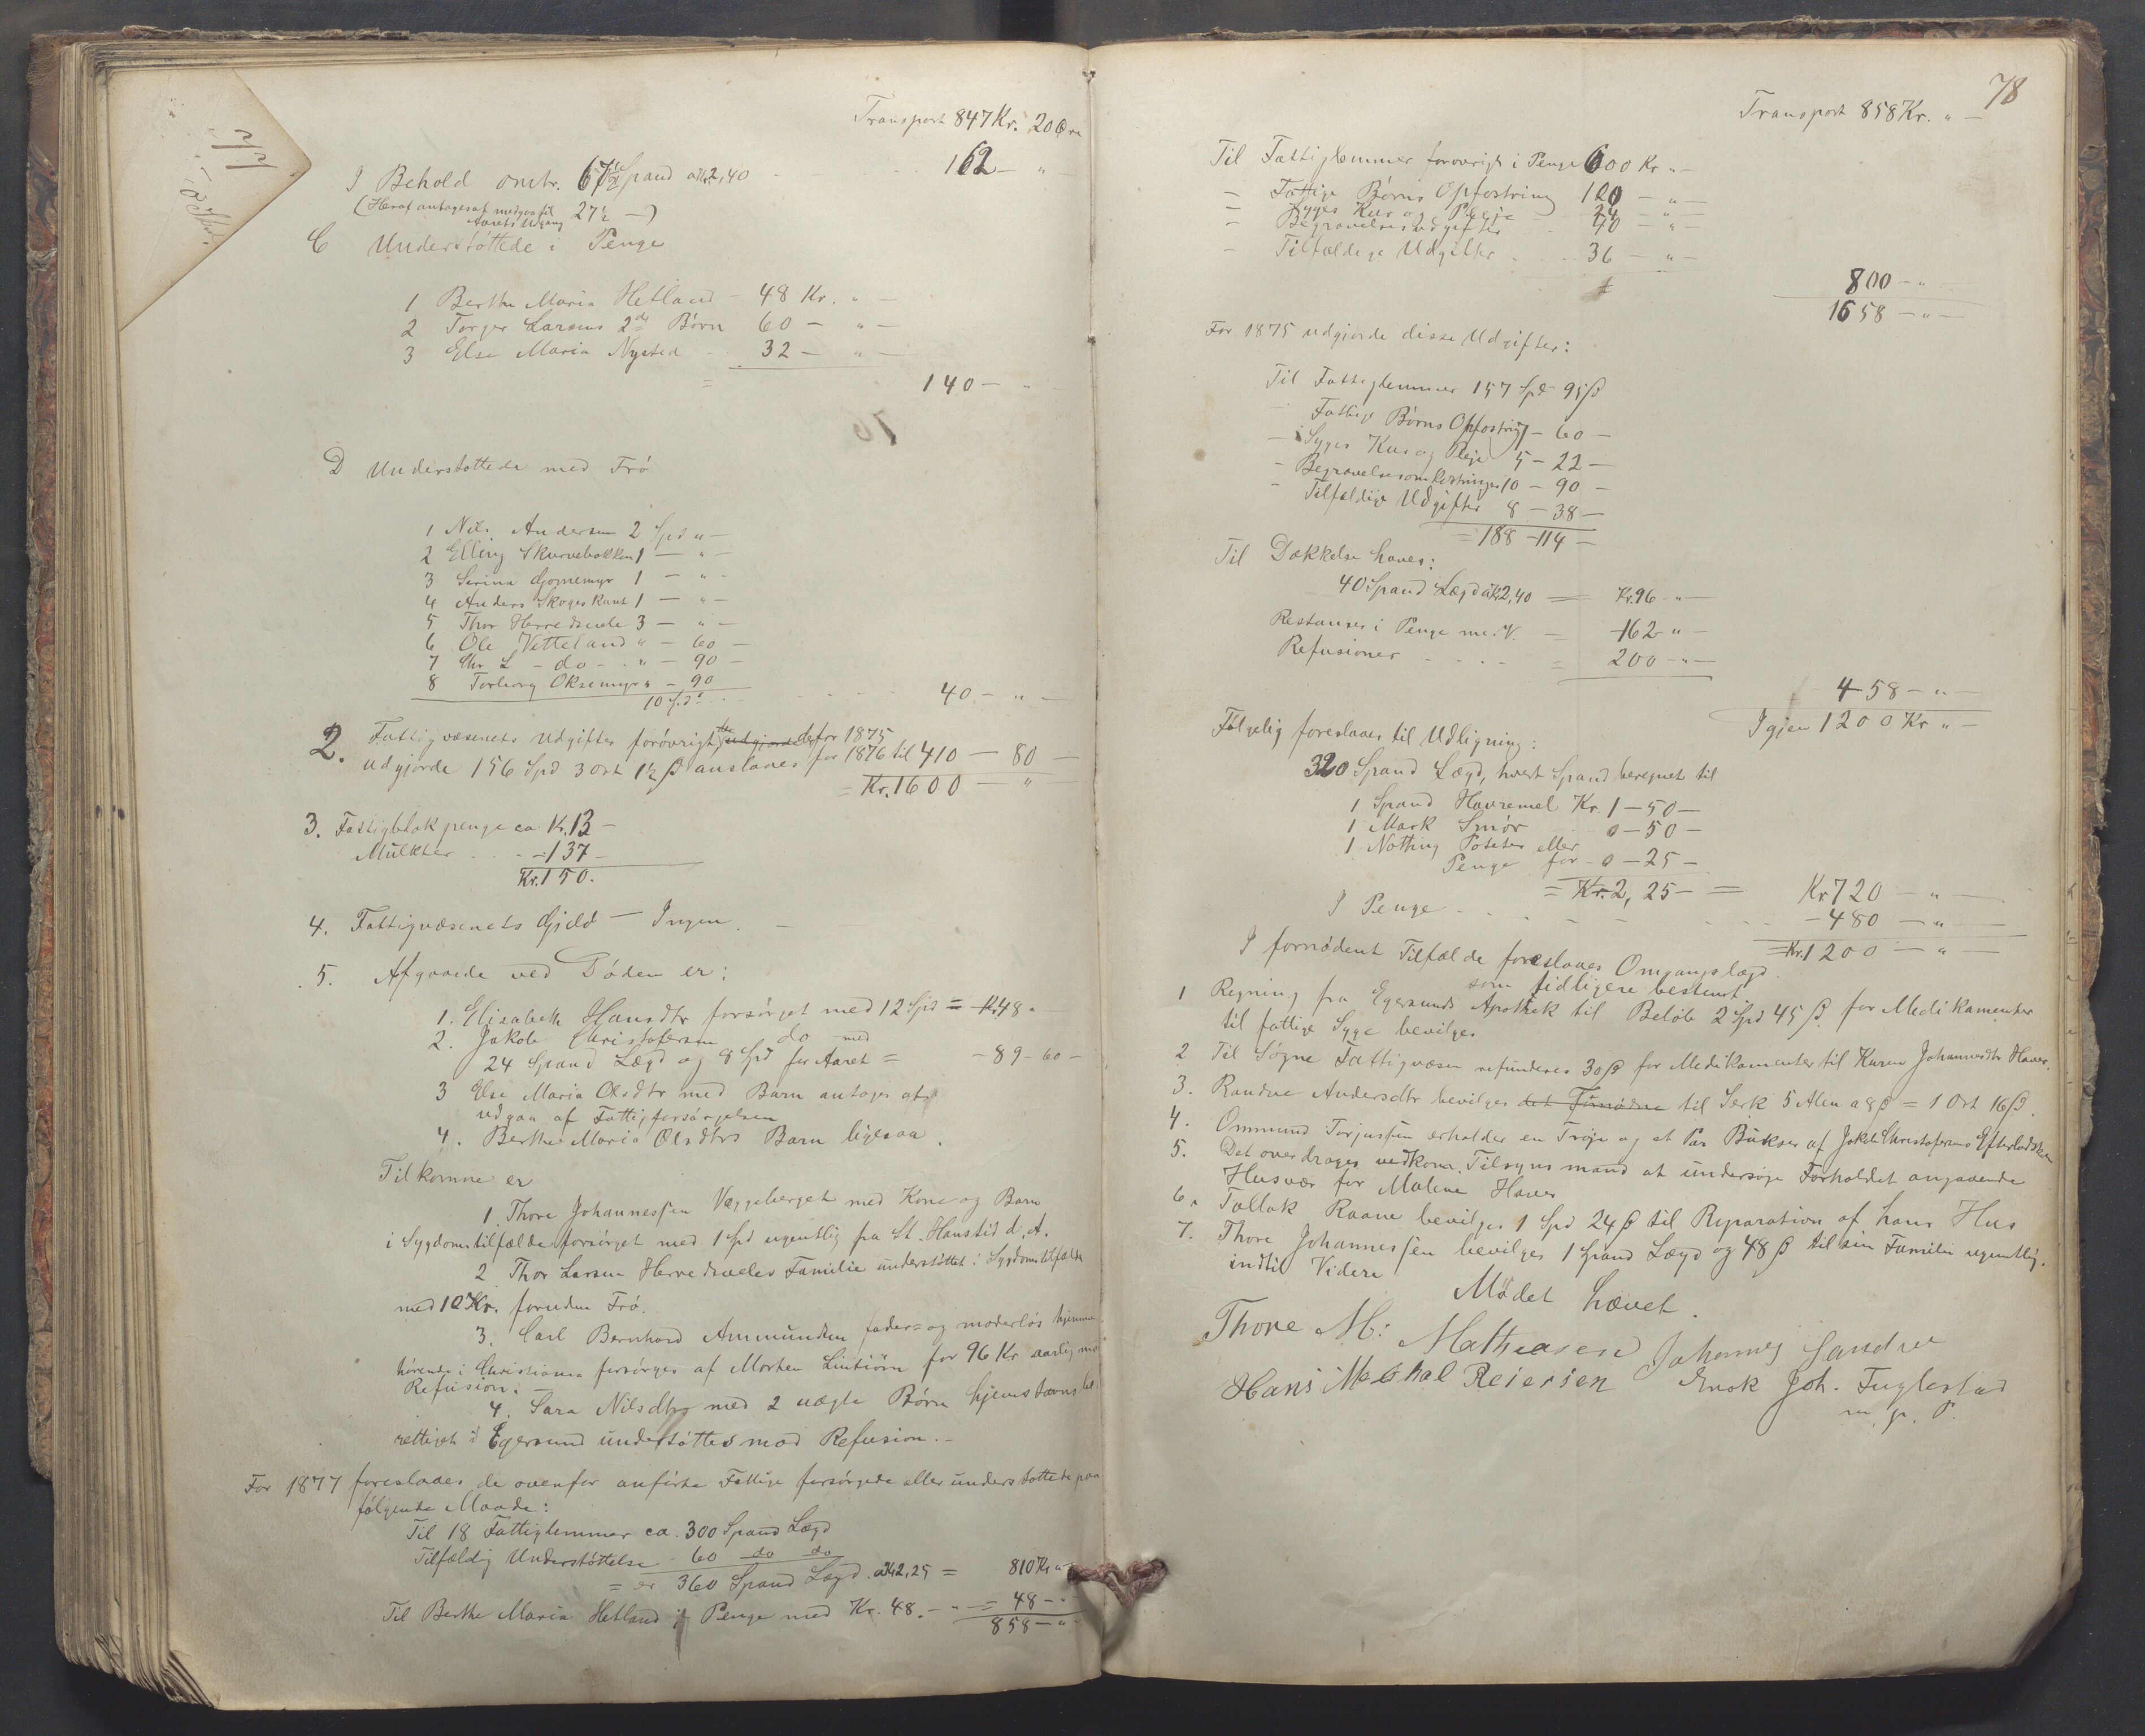 Transport 847 Kr. 20 Øre
I Behold omtr. 67½ Spand a Kr. 2,40 - 162 - " -
(Heraf antagesat medgaa til 27½ -)
Aarets Udgang
C Understøttede i Penge
1 Berthe Maria Hetland - 48 Kr. " -
2 Torger Larsens 2de Børn 60 - " -
3 Else Maria Nysted - 32 - " -
= 140 - " -
D Understøttede med Frø
1 Nils Andersen 2 Spd " -
2 Elling Skurvebakken 1 - " -
3 Serina Gjornemyr 1 - " -
4 Anders Skogeskant 1 - " -
5 Thor Herredsvele 3 - " -
6 Ole Vetteland " - 60 -
7 Chr. L - do - " - 90 -
8 Torborg Oksemyr " - 90
10 Spd - 40 - " -
2. Fattigvæsenets Udgifter forøvrigt, der for 1875
udgjorde 156 Spd 3 ort 1½ β anslaaes for 1876 til 410 - 80 -
= Kr. 1600 - " -
3. Fattigblok penge ca Kr. 13 -
Mulkter - 137 -
Kr. 150.
4. Fattigvæsenets Gjeld - Ingen.
5. Afgaaede ved Døden er:
1. Elisabeth Hansdtr forsørget med 12 Spd = Kr 48 "
2. Jakob Christofersen do med
24 Spand Lægd og 8 Spd for Aaret = - 89 - 60 -
3 Else Maria Olsdtr med Barn antages at
udgaa af Fattigforsørgelsen
4. Berthe Maria Olsdtrs Barn ligesaa.
Tilkomne er
1. Thore Johannessen Væggeberget med Kone og Barn
i Sygdomstilfælde forsørget med 1 Spd ugentlig fra St. Hanstid d. A.
2 Thor Larsen Herredsveles Familie understøttet i Sygdomstilfælde
med 10 Kr. foruden Frø.
3. Carl Bernhard Ammundsen fader= og moderløs hjemme
hørende i Christiania forsørges af Morten Lintiørn for 96 Kr aarlig mod
Refusion.
4. Sara Nilsdtr med 2 uægte Børn hjemstavnsbe-
rettiget i Egersund understøttes mod Refusion. -
For 1877 foreslaaes de ovenfor anførte Fattige forsørgede eller understøttede paa
følgende Maade:
Til 18 Fattiglemmer ca. 300 Spand Lægd
Tilfældig Understøttelse - 60 do do
= er 360 Spand Lægd a Kr 2,25 = 810 Kr " -
Til Berthe Maria Hetland i Penge med Kr. 48. - " - = 48 - "
858 - " -
78
Transport 858 Kr. " -
Til Fattiglemmer forøvrigt i Penge 600 Kr " -
= Fattige Børns Opfostring 100 - " -
= Syges Kur og Pleje - 24 - " -
- Begravelsesudgifter - 40 - " -
- Tilfældige Udgifter - 36 - " -
800 - "
1658 - " -
For 1875 udgjorde disse Udgifter:
Til Fattiglemmer 157 Spd 95 β
Fattige Børns Opfostring 7 - 60 -
- Syges Kur og Pleje 5 - 22 -
- Begravelsesomkostninger 10 - 90 -
- Tilfældige Udgifter 8 - 38 -
= 188 - 114 -
Til Dækkelse haves:
40 Spand Lægd a Kr 2,40 = Kr. 96 - " -
Restanser i Penge m. V. = - 162 - " -
Refusioner = 200 - " -
458 - " -
Igjen 1200 Kr " -
Følgelig foreslaaes til Udligning:
320 Spand Lægd, hvert Spand beregnet til
1 Spand Havremel Kr. 1 - 50 -
1 Mark Smør 0 - 50 -
1 Notting Poteter eller
Penge for - 0 - 25 -
= Kr. 2, 25 - = Kr 720 - " -
I Penge - 480 - " -
= Kr. 1200 - " -
I fornødent Tilfælde foreslaaes Omgangslægd
som tidligere bestemt.
1 Regning fra Egersunds Apothek til Beløb 2 Spd 45 β for Medikamenter
til fattige Syge bevilges
2 Til Søgne Fattigvæsen refunderes 30 β for Medikamenter til Karen Johannesdtr Haver.
3. Randve Andersdtr bevilges til Serk 5 Alen a 8 β = 1 Ort 16 β.
4. Ommund Torjussen erholder en Trøje og et Par Bukser af Jakob Christofersens Efterladskab
5. Det overdrages vedkom. Tilsynsmand at undersøge Forholdet angaaende
Husvær for Malene Haver
6. Tollak Raane bevilges 1 Spd 24 β til Reparation af hans Hus
7. Thore Johannessen bevilges 1 Spand Lægd og 48 β til sin Familie ugentlig.
indtil Videre
Mødet hævet.
Thore M: Mathiasen Johannes Sandve
Hans Michal Reiersen Enok Joh. Fuglestad
m. p. P.